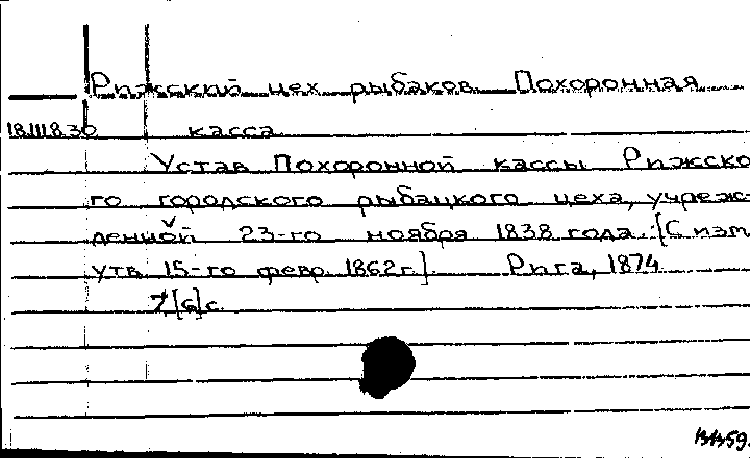 Рижский цех рыбаков. Похоронная
18.III.8.30 касса
Устав Похоронной кассы Рижско
го городского рыбацкого цеха, учреж-
денной 23-го ноября 1838 года. [С изм.
утв. 15-го февр. 1862 г.]. Рига, 1874
7,[6] с.